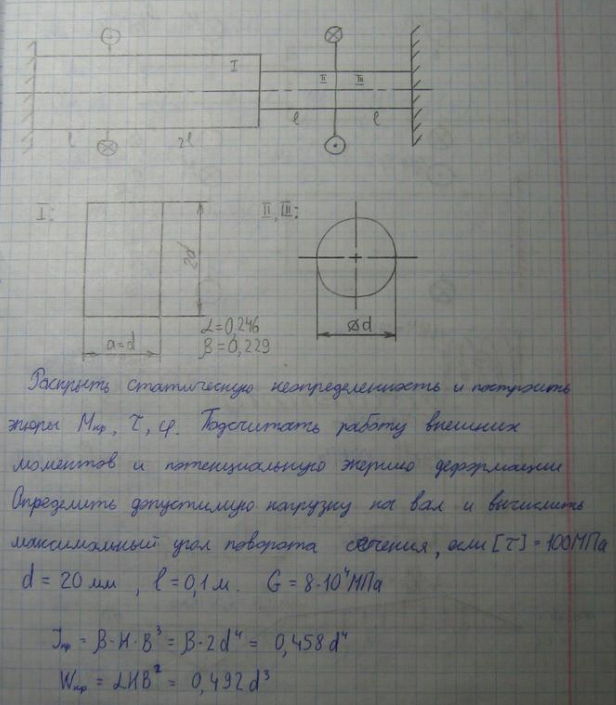 I
II
III
l
2l
l
l
I:
II, III:
2d
a=d
α=0,246
β=0,229
⌀d
Раскрыть статическую неопределенность и построить
эпюры Мкр, τ, φ. Подсчитать работу внешних
моментов и потенциальную энергию деформации
Определить допустимую нагрузку на вал и вычислить
максимальный угол поворота сечения, если [τ] = 100МПа
d = 20 мм, l = 0,1 м. G = 8·10⁴МПа
Jкр = β·H·B³ = β·2d⁴ = 0,458d⁴
Wкр = αHB² = 0,492d³